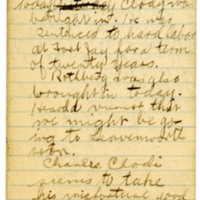 today Clodi was
brought in. He was
sentenced to hard labor
at Fort Jay for a term
of twenty years.
Rothberg was also
brought in today.
Heard rumor that
we might be go-
ing to Leavenworth
soon.
Charlie Clodi
seems to take
his misfortune good